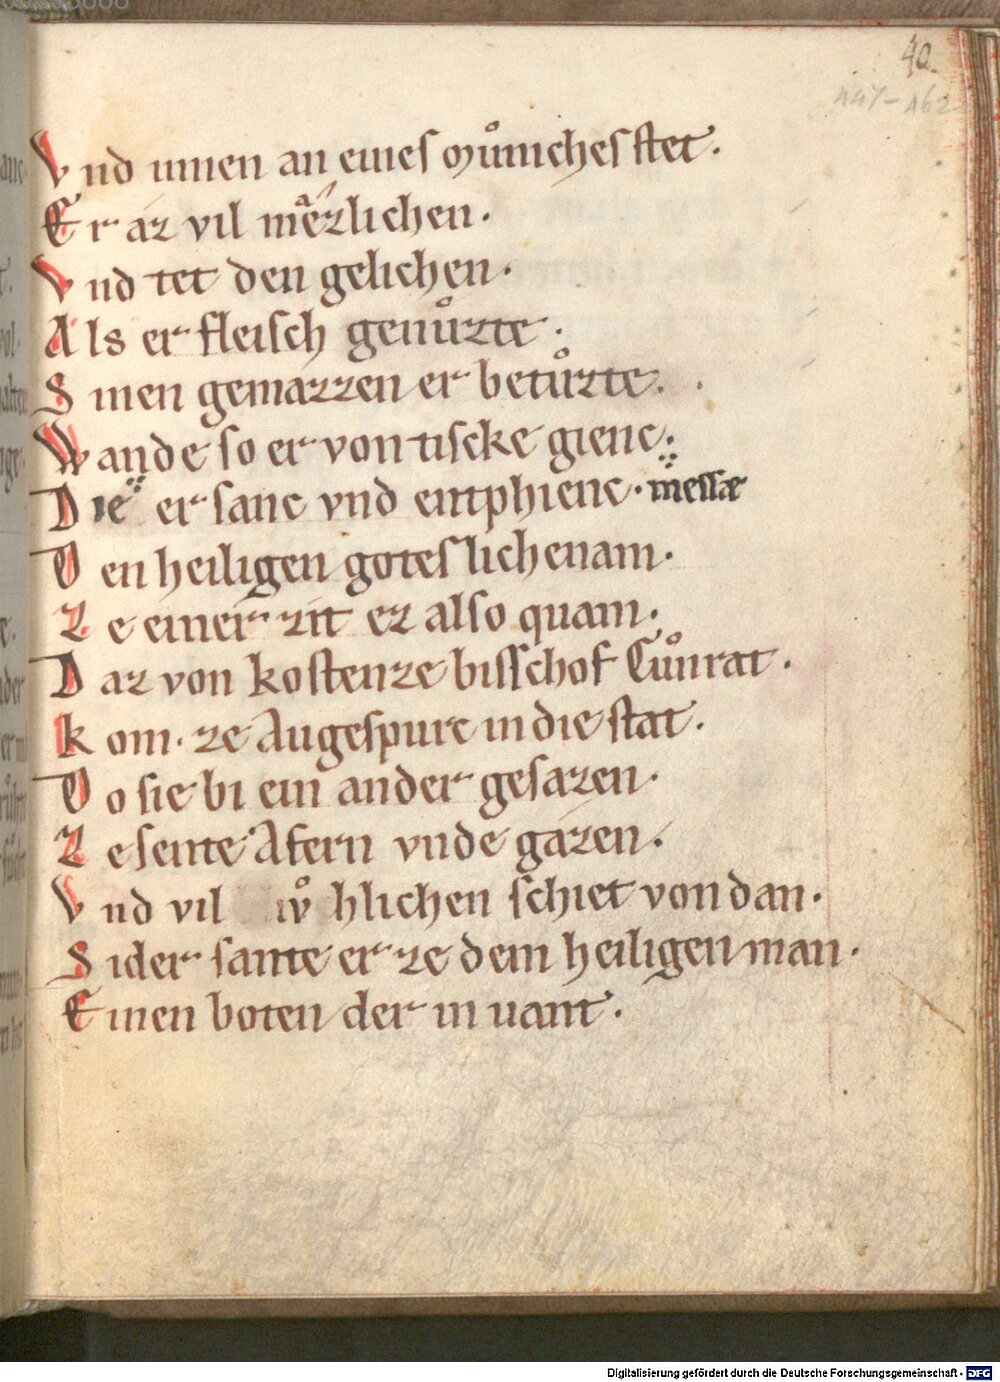 40
447–462
Vnd innen an eines mu̍niches stet.
Er az vil mêzlichen.
Vnd tet den gelichen.
Als er fleisch genuͦzte.
Sinen gemazzen er betuͦzte.
Wande so er von tiscke gienc.
Die er sanc vnd entphienc. messæ
Den heiligen gotes lichenam.
Ze einer zit ez also quam.
Daz von kostenze bisschof Cuͦnrat.
kom. ze Augespurc in die stat.
Do sie bi ein ander gesazen.
Ze sente Afern vnde gazen.
Vnd vil hlichen schiet von dan.
Sider sante er ze dem heiligen man.
Einen boten der in uant.
Digitalisierung gefördert durch die Deutsche Forschungsgemeinschaft · DFG